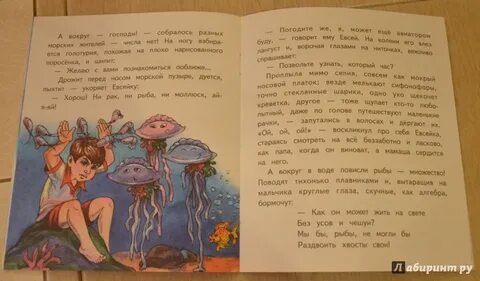 А вокруг — господи! — собралось разных
морских жителей — числа нет! На ногу взбирается
голотурия, похожая на плохо нарисованного
поросёнка, и шипит:
— Желаю с вами познакомиться поближе...
Дрожит перед носом морской пузырь, дуется,
пыхтит — укоряет Евсейку:
— Хорош! Ни рак, ни рыба, ни моллюск, ай-
я-яй!
— Погодите же, я, может ещё авиатором
буду, — говорит ему Евсей. На колени его влез
лангуст и, ворочая глазами на ниточках, вежливо
спрашивает:
— Позвольте узнать, который час?
Проплыла мимо сепия, совсем как мокрый
носовой платок; везде мелькают сифонофоры,
точно стеклянные шарики, одно ухо щекочет
креветка, другое — тоже щупает кто-то любо-
пытный, даже по голове путешествуют маленькие
рачки, — запутались в волосах и дёргают их.
«Ой, ой, ой!» — воскликнул про себя Евсейка,
стараясь смотреть на всё беззаботно и ласково,
как папа, когда он виноват, а мамаша сердится
на него.
А вокруг в воде повисли рыбы — множество!
Поводят тихонько плавниками и, вытаращив на
мальчика круглые глаза, скучные, как алгебра,
бормочут:
— Как он может жить на свете
Без усов и чешуи?
Мы бы, рыбы, не могли бы
Раздвоить хвосты свои!
Лабиринт.ру